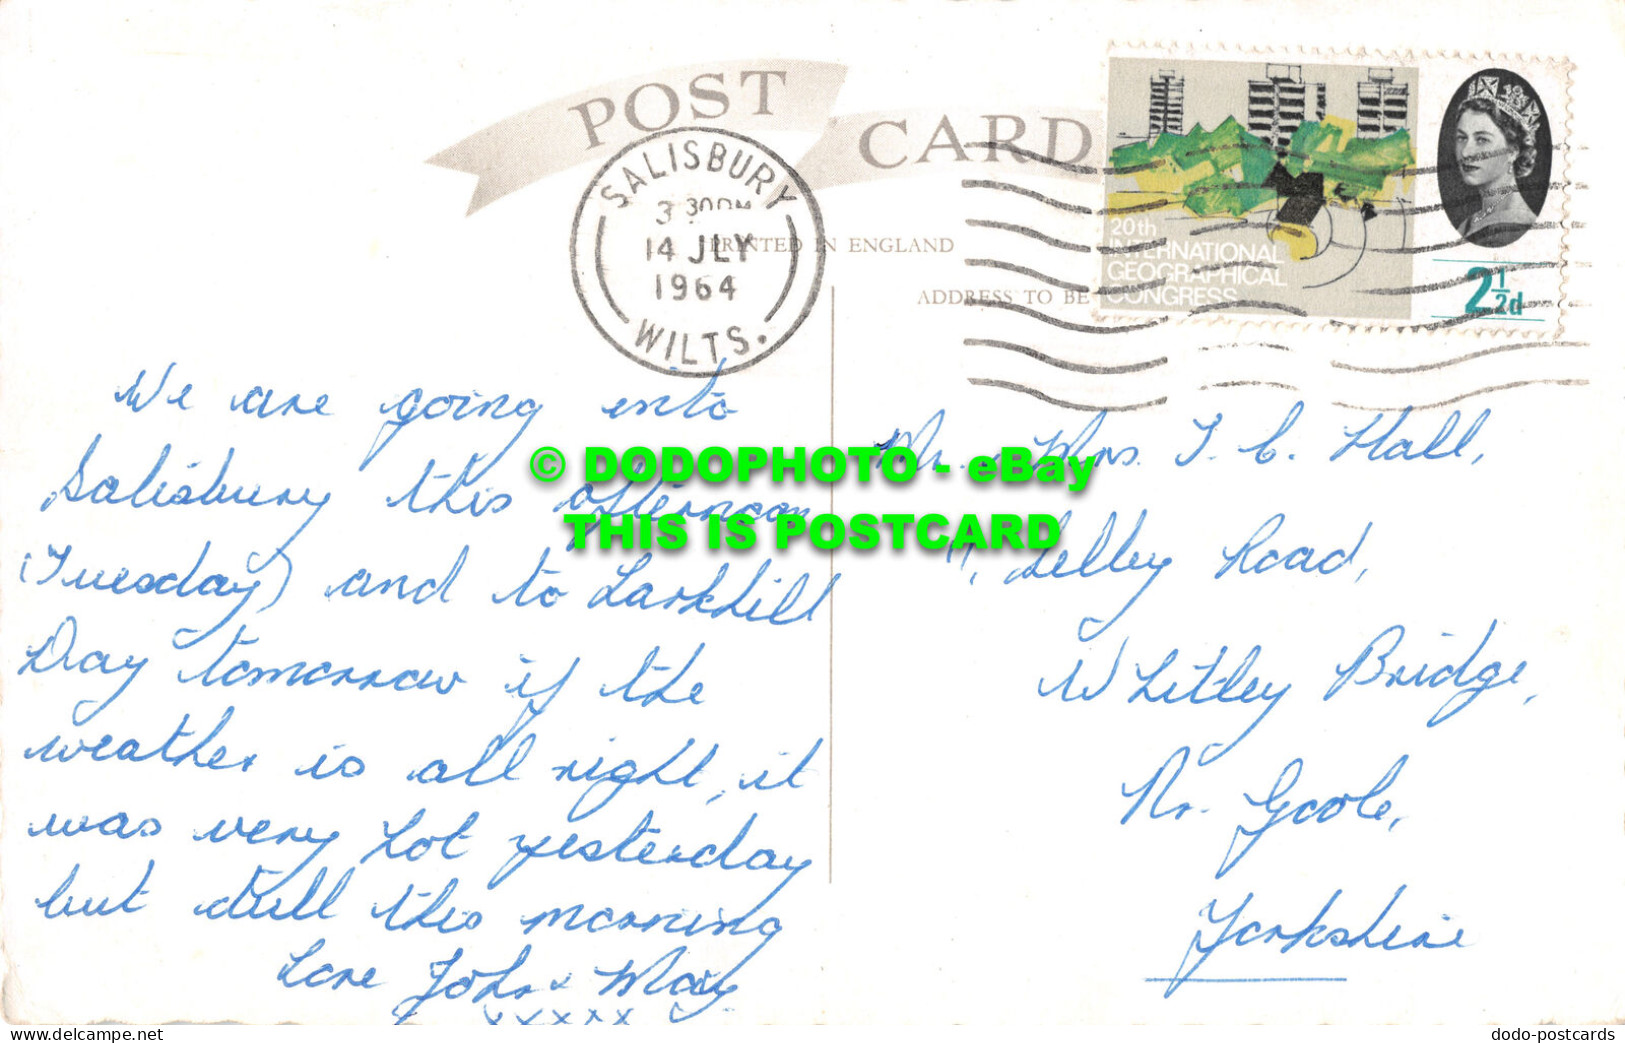 POST CARD
SALISBURY
3 30PM
14 JLY
1964
WILTS.
PRINTED IN ENGLAND
ADDRESS TO BE
20th
INTERNATIONAL
GEOGRAPHICAL
CONGRESS
2½d
We are going into
Salisbury this afternoon
(Tuesday) and to Larkhill
Day tomorrow if the
weather is all right, it
was very hot yesterday
but dull this morning
Love John & May
xxxxx
Mr. & Mrs. T. C. Hall,
11, Selby Road,
Whitley Bridge,
Nr. Goole,
Yorkshire
© DODOPHOTO - eBay
THIS IS POSTCARD
delcampe.net
dodo-postcards